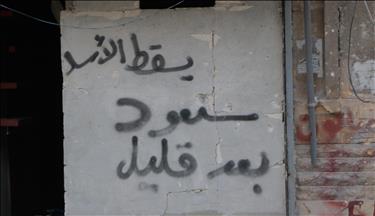 يسقط الأسد
سنعود
بعد قليل